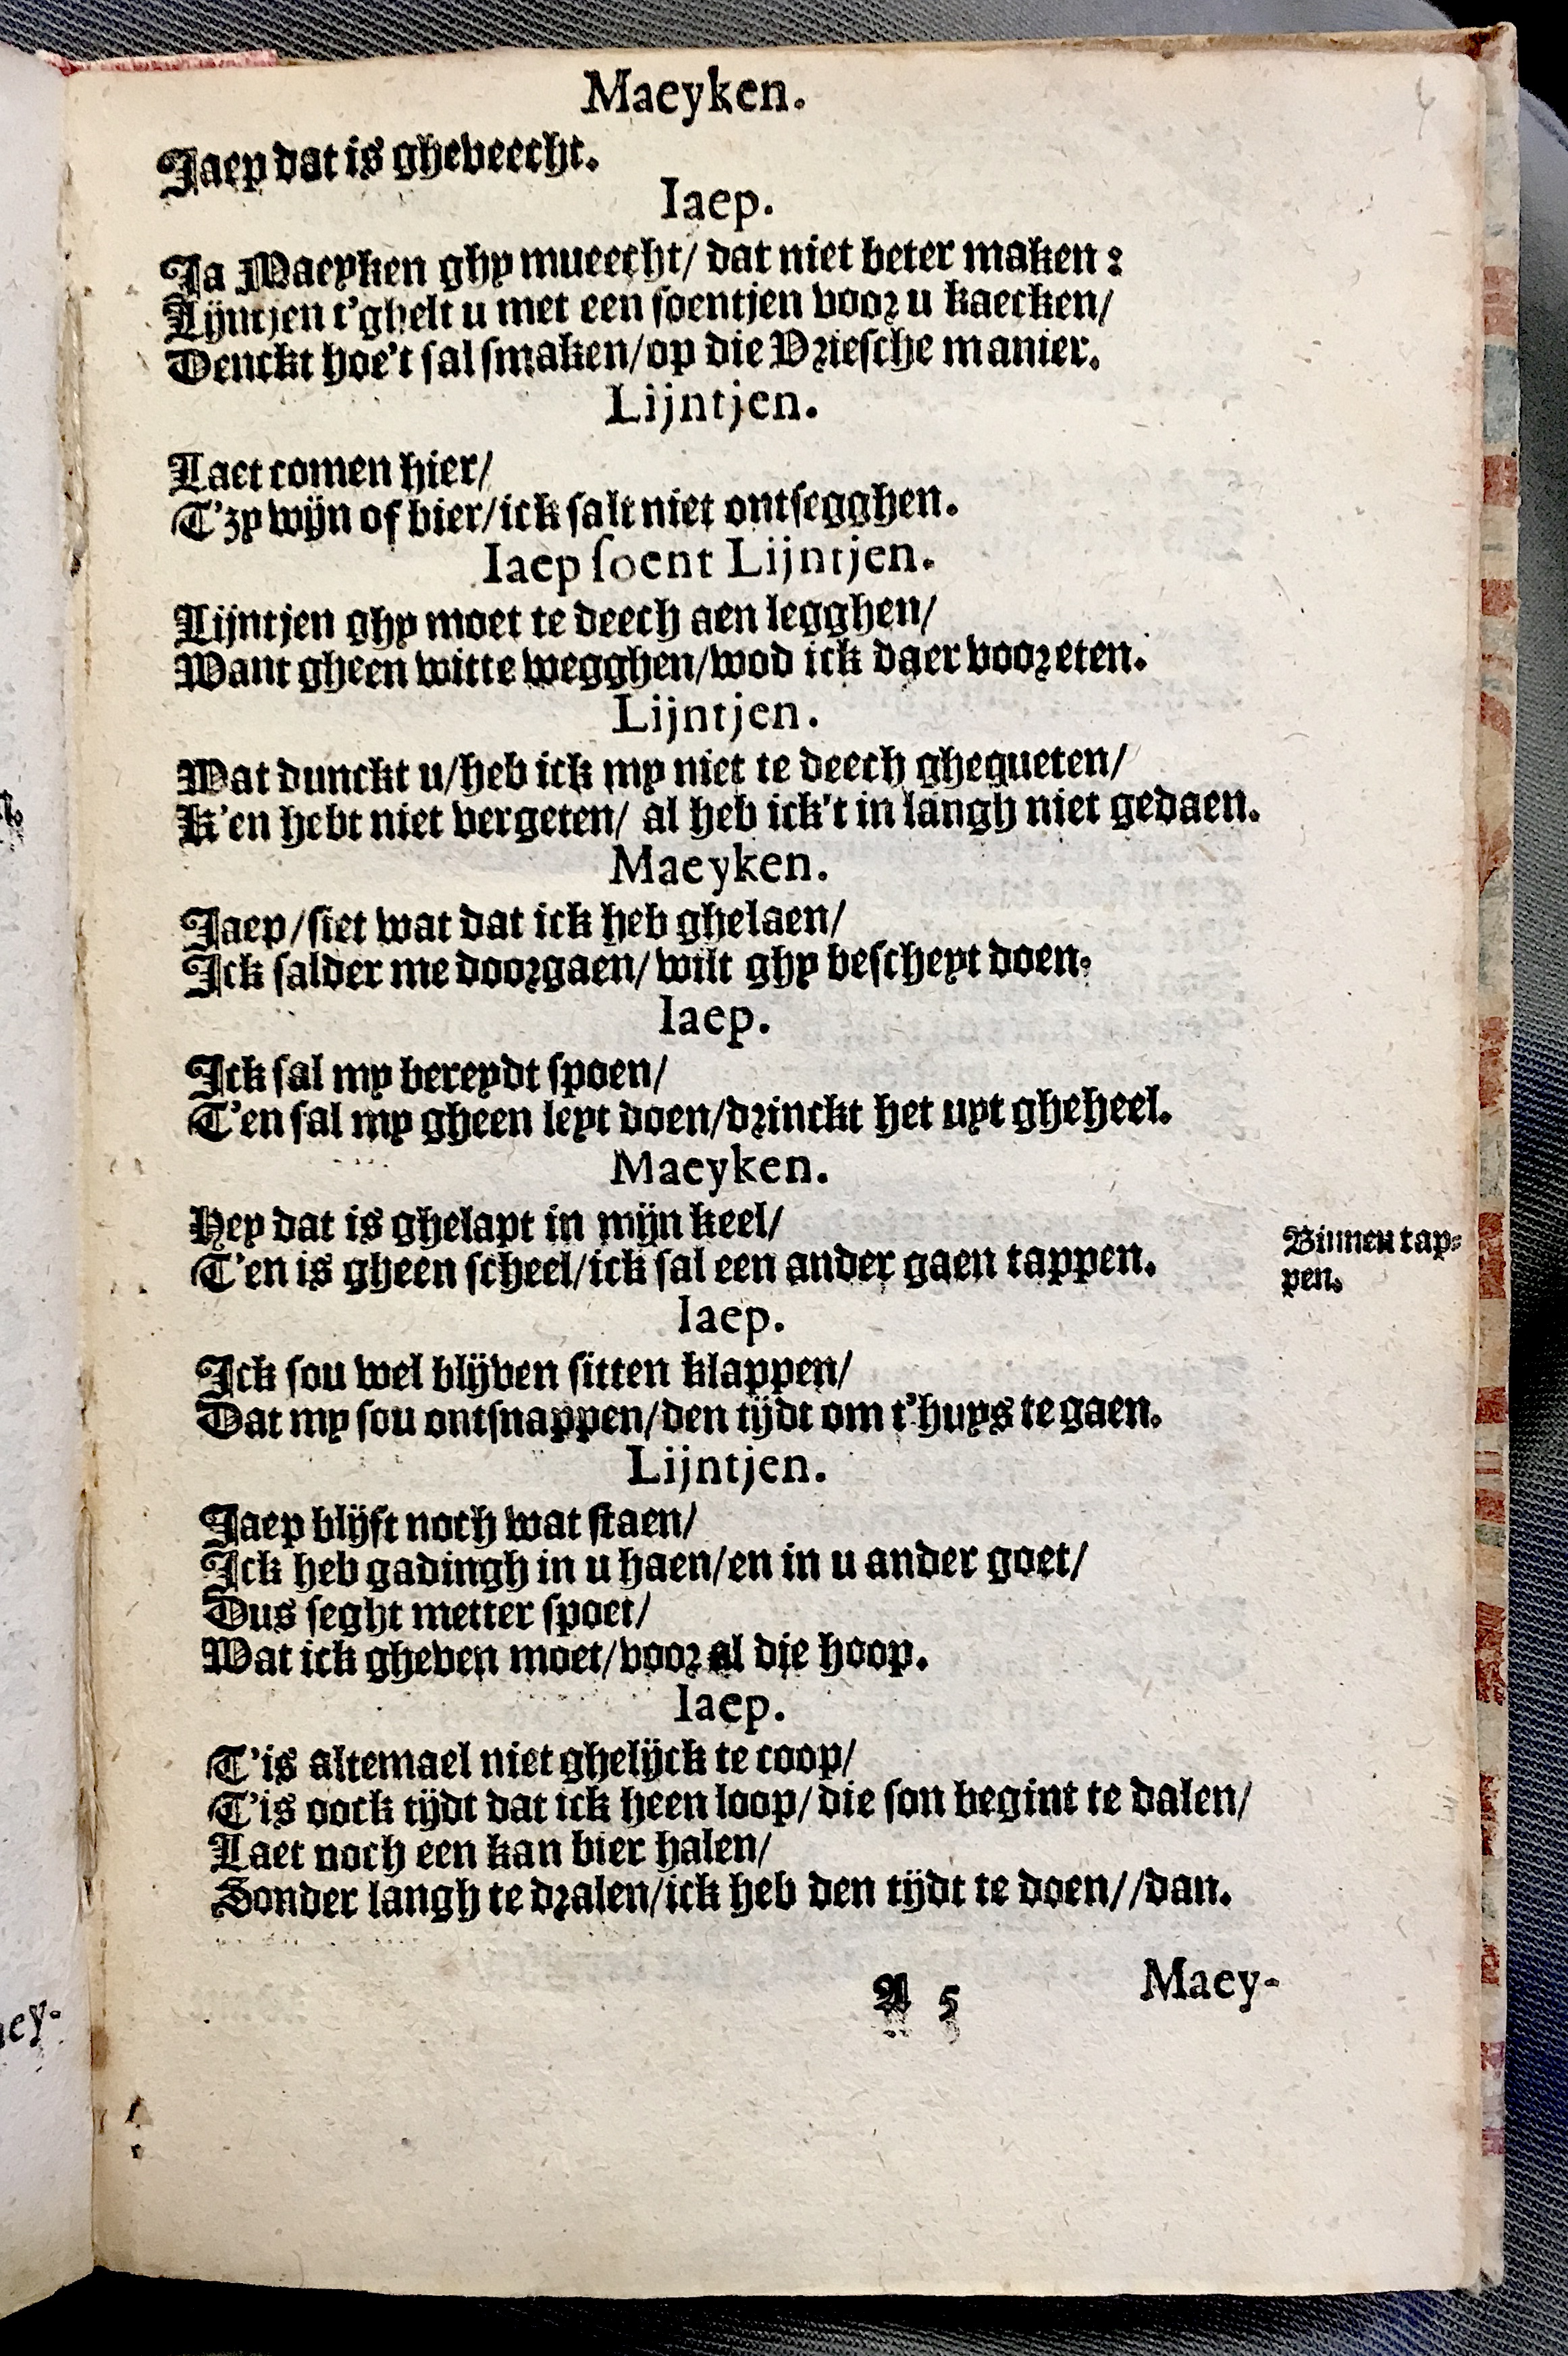 Maeyken.
Jaep dat is gheveecht.
Iaep.
Ja Maeyken ghy mueecht/ dat niet beter maken:
Lijntjen t'ghelt u met een soentjen voor u kaecken/
Denckt hoe't sal smaken/op die Vriesche manier.
Lijntjen.
Laet comen hier/
T'zy wijn of bier/ick salt niet ontsegghen.
Iaep soent Lijntjen.
Lijntjen ghy moet te deech aen legghen/
Want gheen witte wegghen/wod ick daer voor eten.
Lijntjen.
Wat dunckt u/heb ick my niet te deech ghequeten/
K'en hebt niet vergeten/ al heb ick't in langh niet gedaen.
Maeyken.
Jaep/siet wat dat ick heb ghelaen/
Ick salder me doorgaen/wilt ghy bescheyt doen.
Iaep.
Ick sal my bereydt spoen/
T'en sal my gheen leyt doen/drinckt het uyt gheheel.
Maeyken.
Hey dat is ghelapt in mijn keel/
T'en is gheen scheel/ick sal een ander gaen tappen.
Binnen tap-
pen.
Iaep.
Ick sou wel blijven sitten klappen/
Dat my sou ontsnappen/den tijdt om t'huys te gaen.
Lijntjen.
Jaep blijft noch wat staen/
Ick heb gadingh in u haen/en in u ander goet/
Dus seght metter spoet/
Wat ick gheven moet/voor al die hoop.
Iaep.
T'is altemael niet ghelijck te coop/
T'is oock tijdt dat ick heen loop/die son begint te dalen/
Laet noch een kan bier halen/
Sonder langh te dralen/ick heb den tijdt te doen//dan.
A 5
Maey-